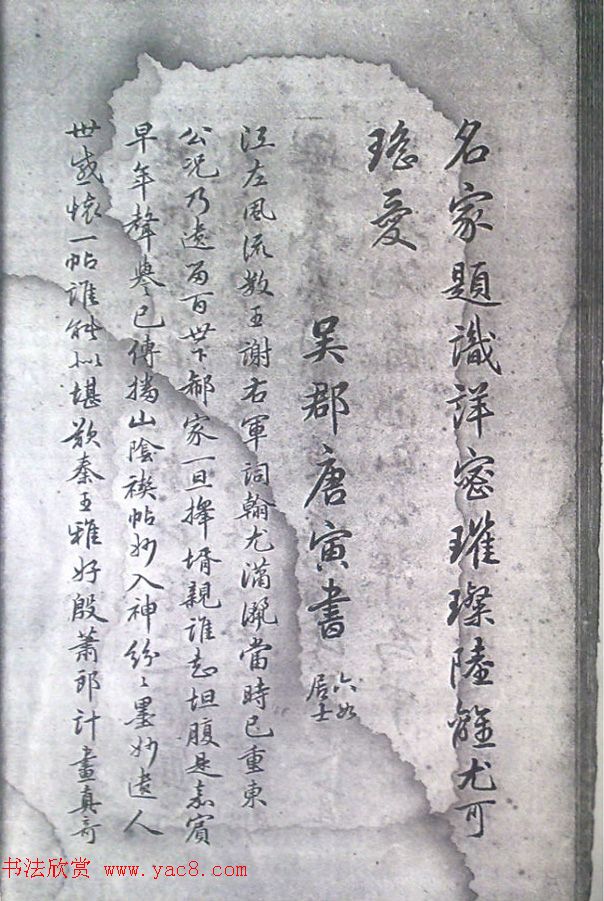 名家題識詳密璀璨陸離尤可
瑤愛
吳郡唐寅書
六如
居士
江左風流數王謝右軍詞翰尤瀟灑當時已重東
公況乃遺留百世下郗家一旦擇壻親誰知坦腹是嘉賓
早年聲譽已傳播山陰禊帖妙入神紛紛墨妙遺人
世感懷一帖誰能似堪歎秦王雅好殷蕭郎計畫真奇
书法欣赏 www.yac8.com